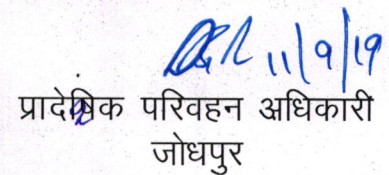 11/9/19
प्रादेशिक परिवहन अधिकारी
जोधपुर